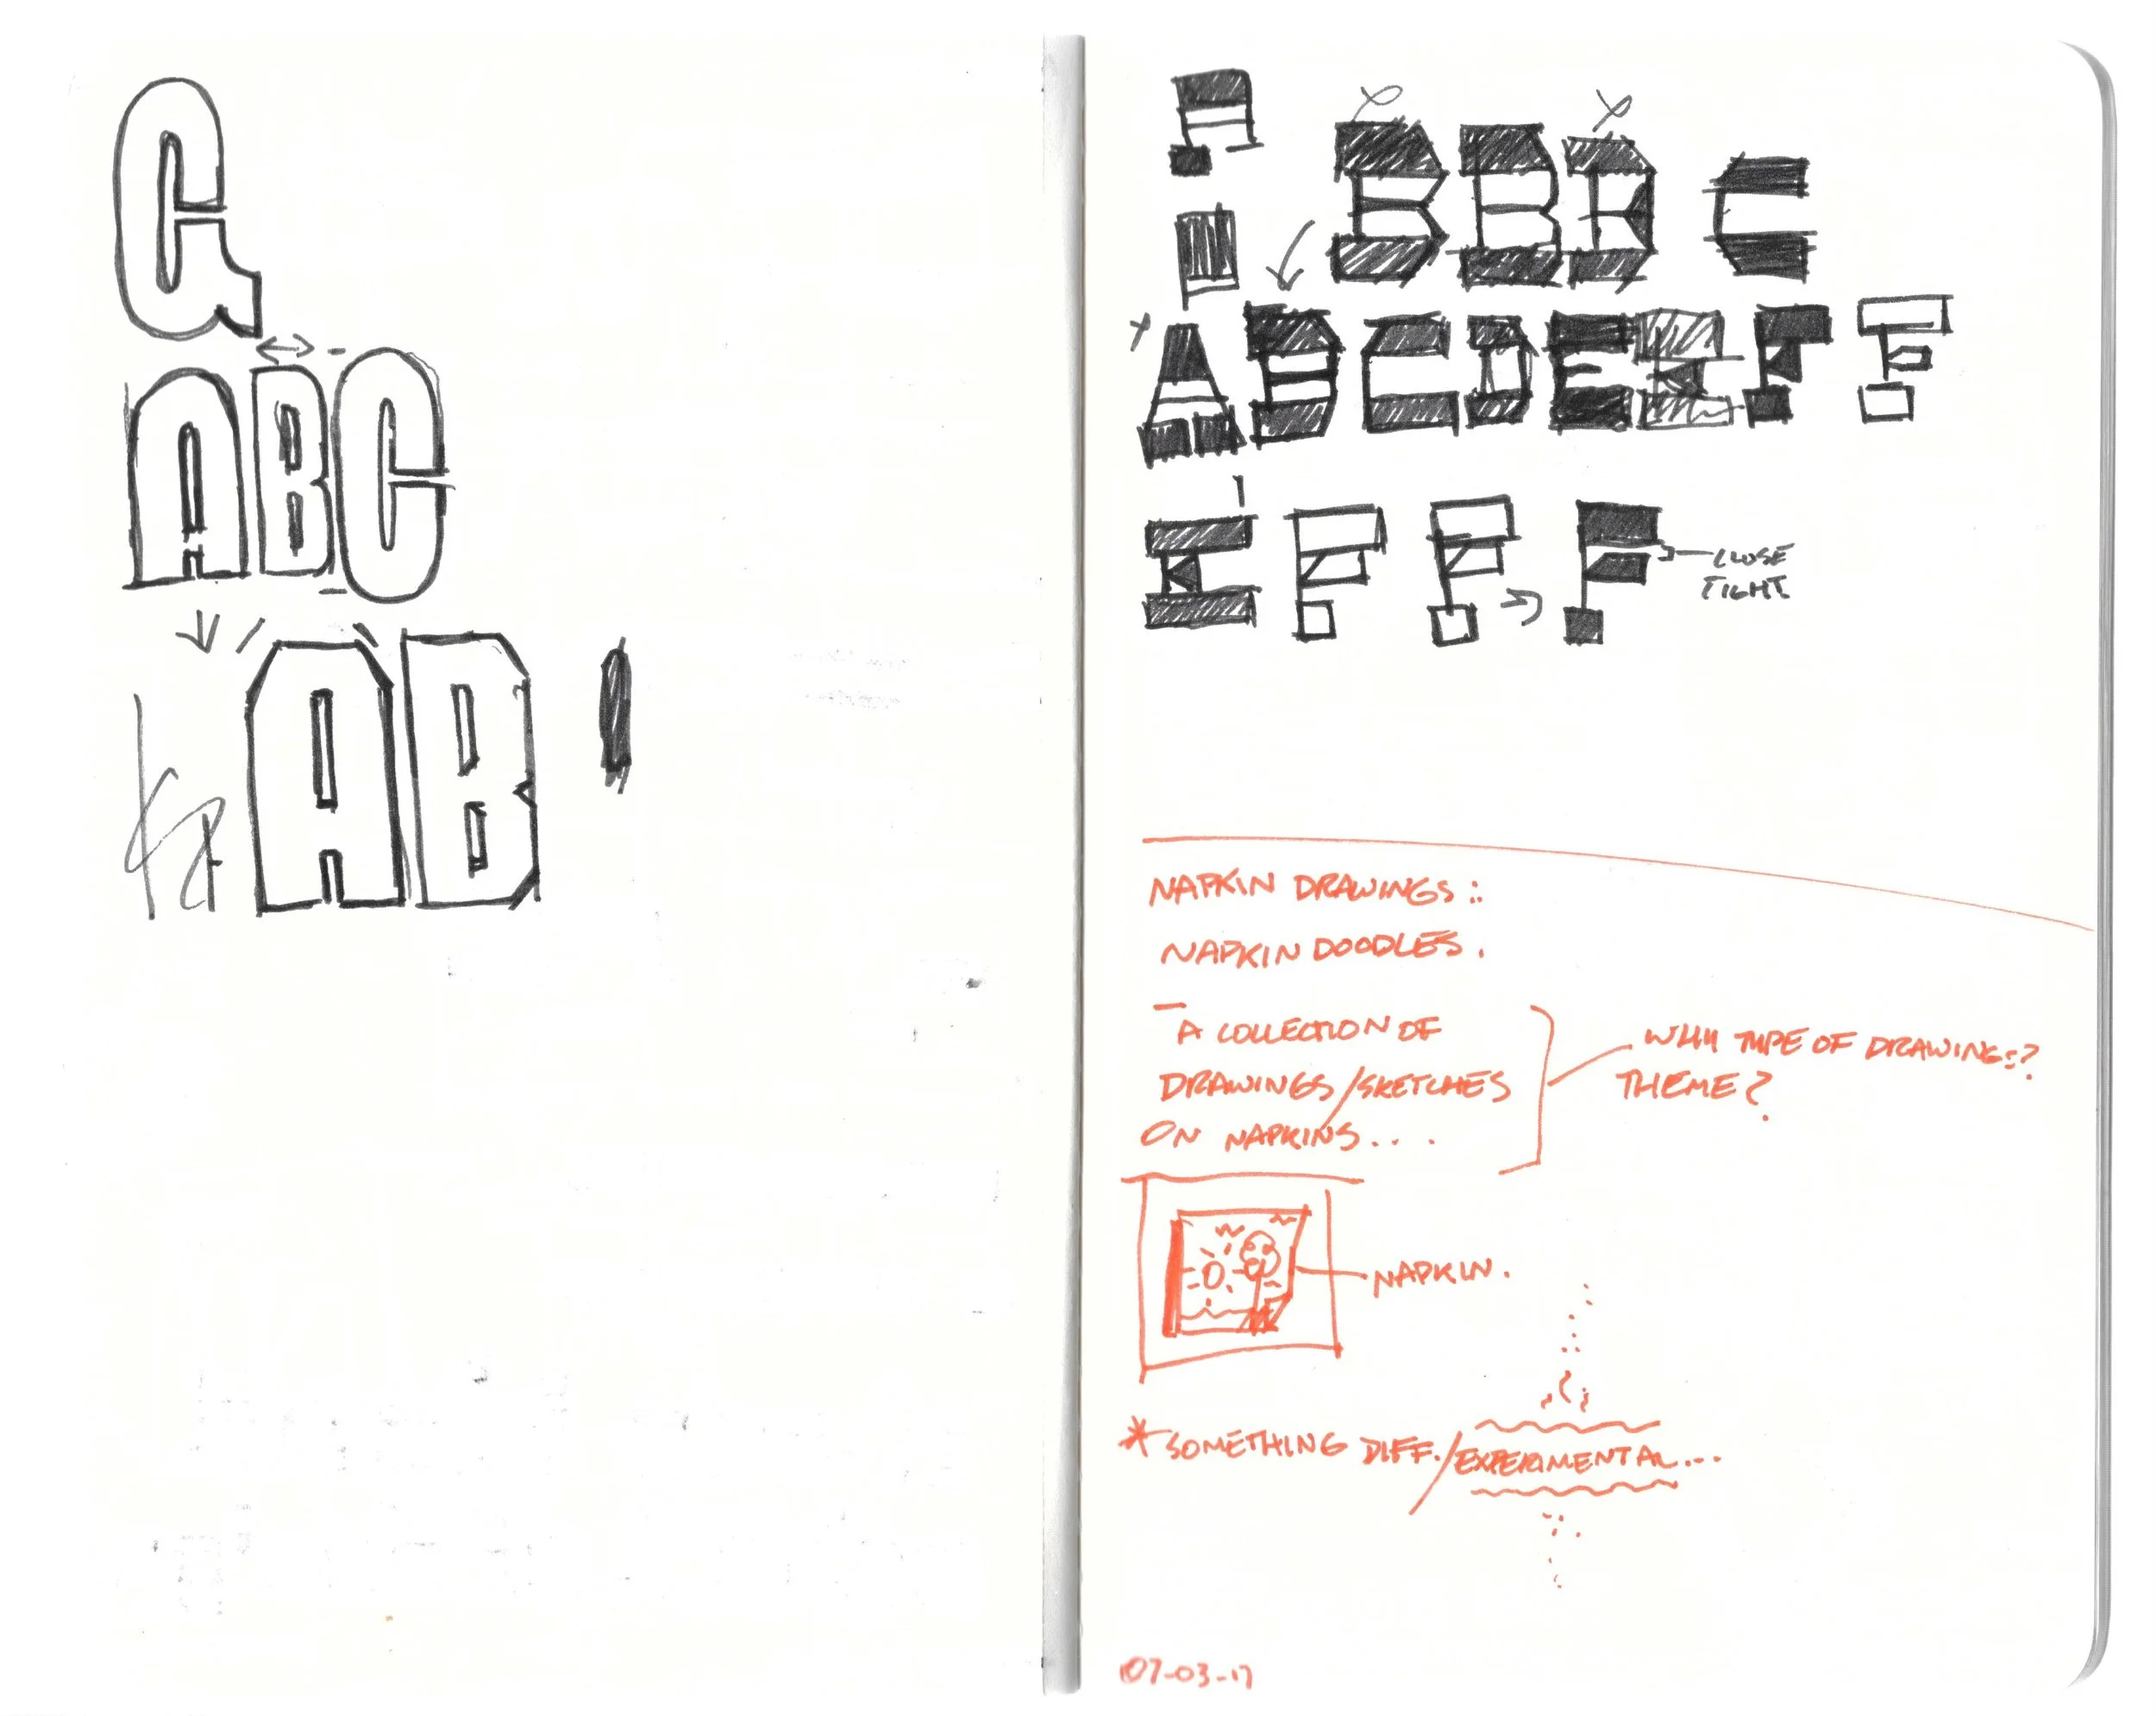 G
ABC
AB
A BBB C
ABCDEEFF
EFFF
CLOSE
TIGHT
NAPKIN DRAWINGS::
NAPKIN DOODLES.
— A COLLECTION OF
DRAWINGS/SKETCHES
ON NAPKINS....
TYPE OF DRAWINGS?
THEME?
NAPKIN.
*SOMETHING DIFF./EXPERIMENTAL...
07-03-17